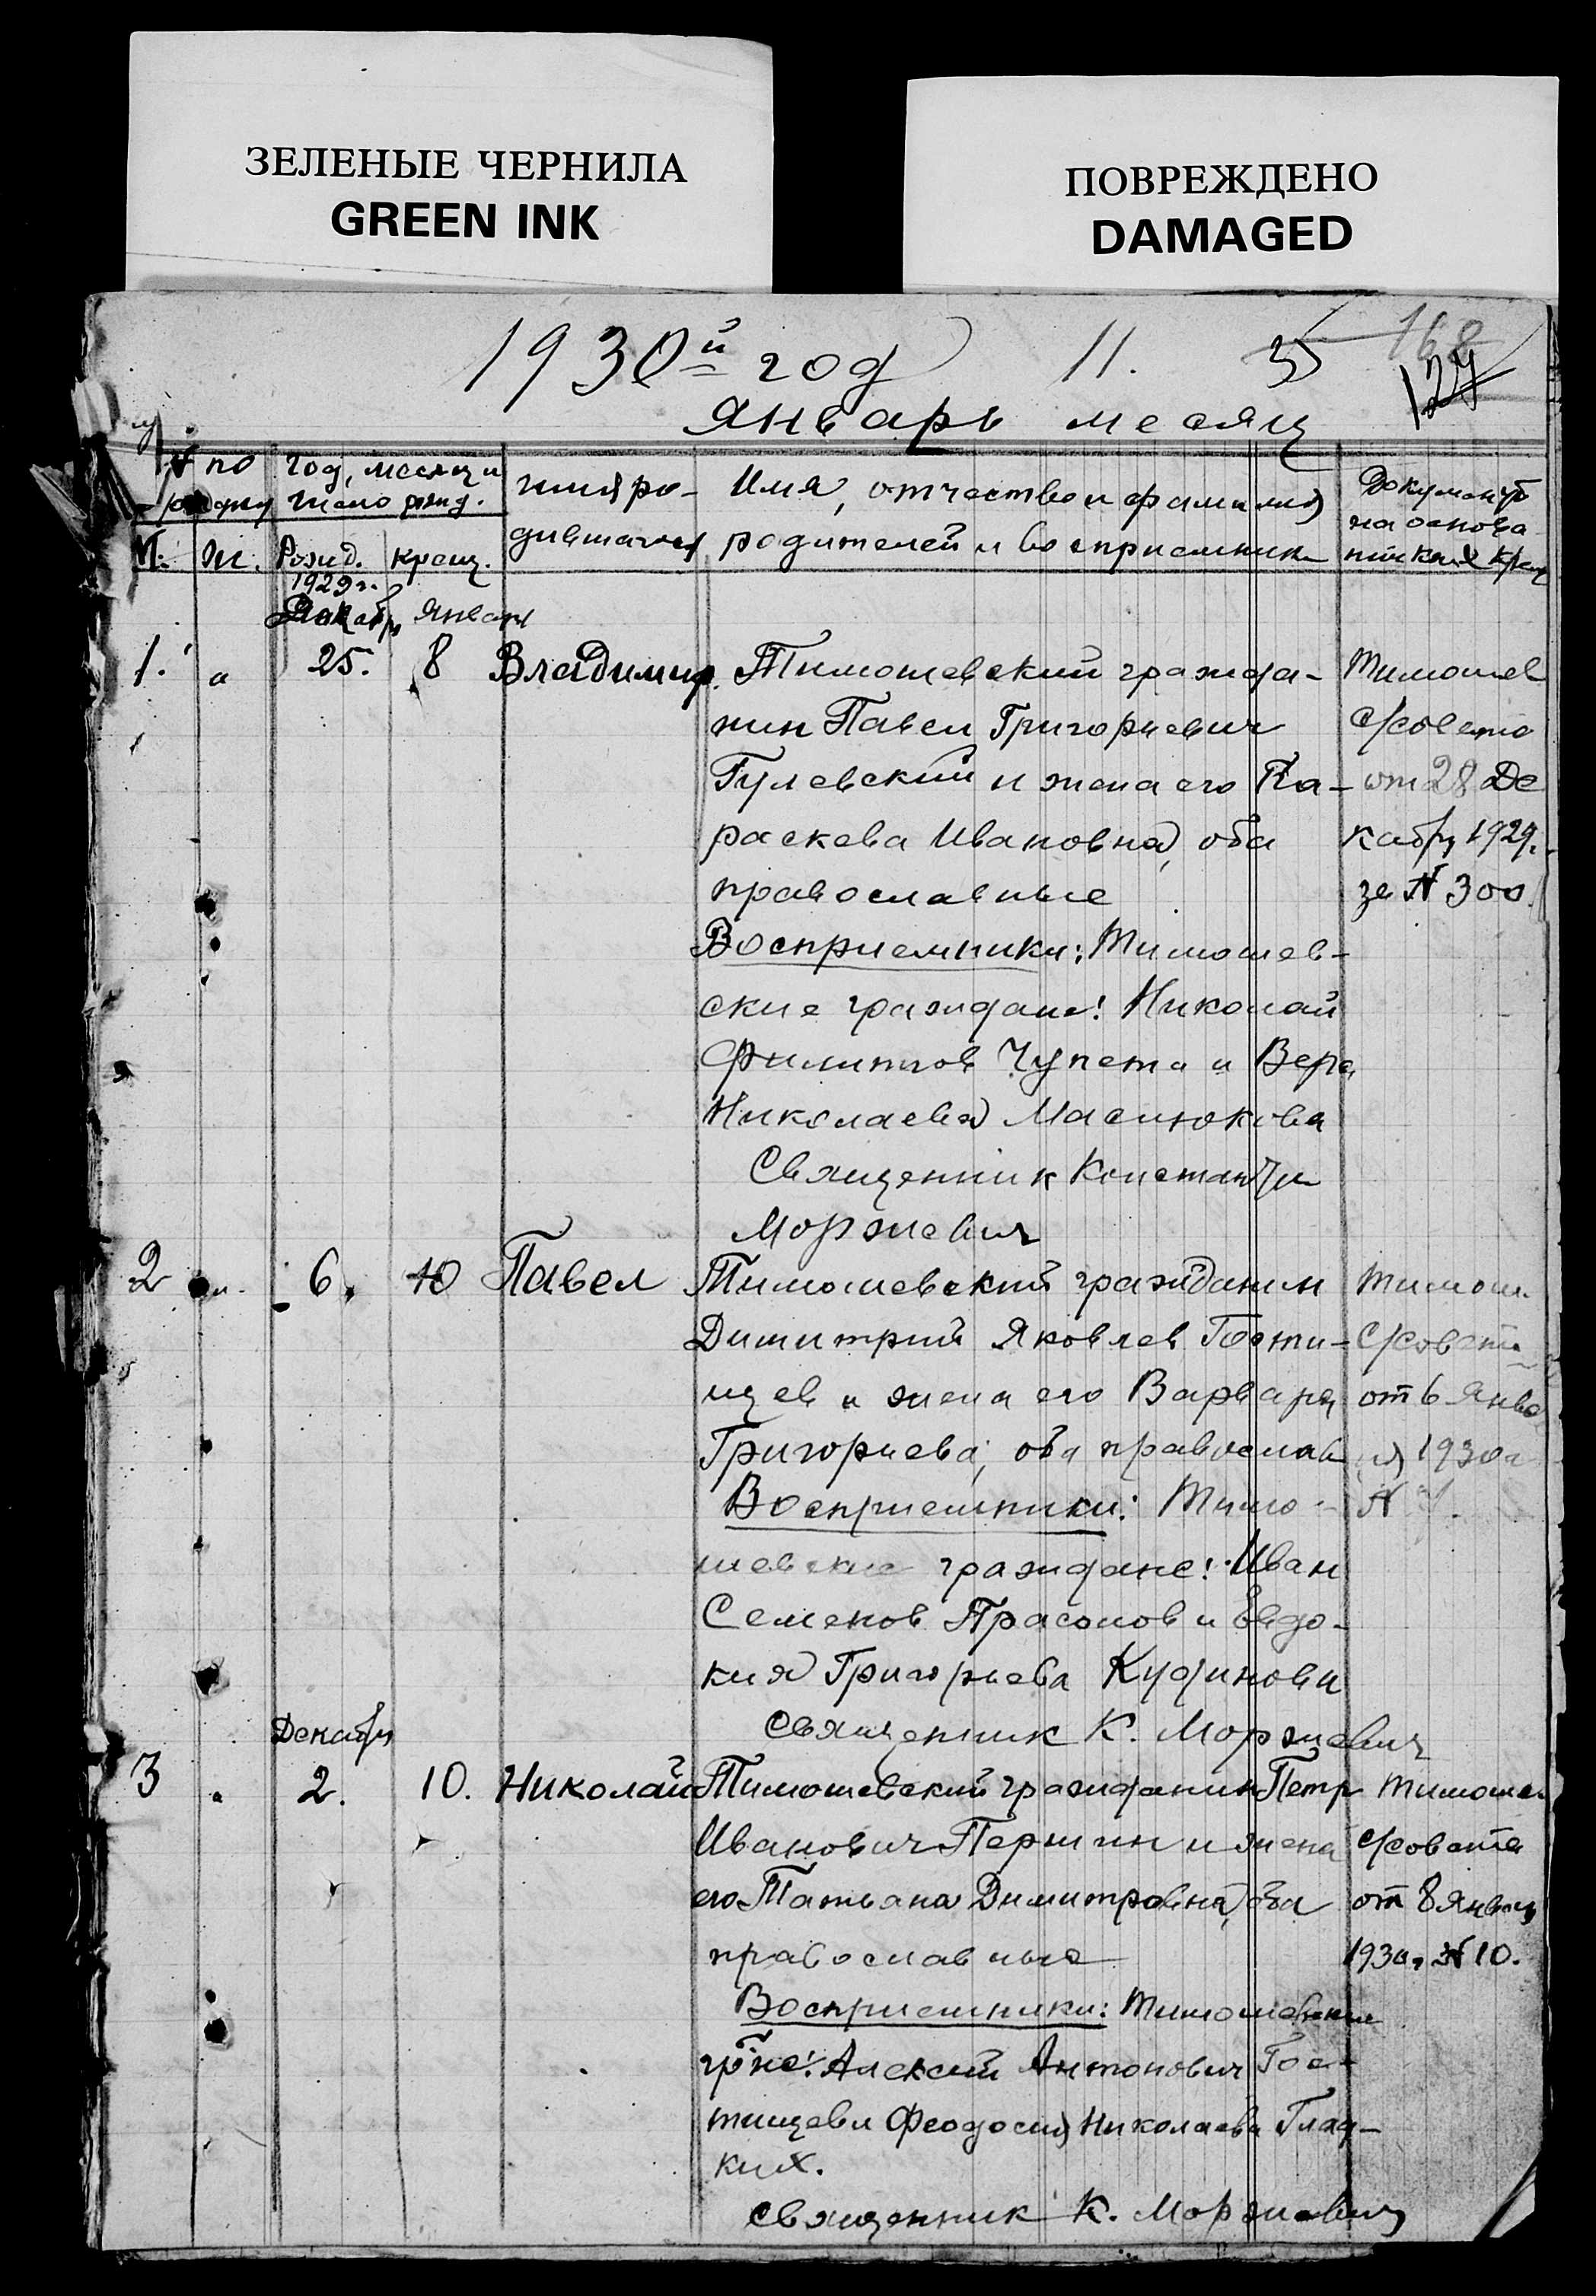 ЗЕЛЕНЫЕ ЧЕРНИЛА
GREEN INK
ПОВРЕЖДЕНО
DAMAGED
1930й год 11. 35 168 124
Январь месяц
№ по
год, месяц и
число рожд.
М. Ж. Рожд. крещ.
имя ро-
дившагося
Имя, отчество и фамилия
родителей и восприемник
Документ
на основа
1929 г.
Декабрь Январь
1. " 25. 8 Владимир
Тимошевский гражда-
нин Павел Григорьевич
Гулевский и жена его Па-
раскева Ивановна, оба
православные
Восприемники: Тимошев-
ские граждане: Николай
Филиппов Чупета и Вера
Николаева Масюкова
Священник Константин
Моржевич
Тимошев
с/совета
от 28 Де
кабря 1929г.
за № 300.
2 " 6. 10 Павел
Тимошевский гражданин
Димитрий Яковлев Гости-
щев и жена его Варвара
Григорьева, оба православ
Восприемники: Тимо-
шевские граждане: Иван
Семенов Прасолов и Евдо-
кия Григорьева Куфинова
Священник К. Моржевич
Тимош.
с/совета
от 6 Янва
ря 1930г
№
Декабря
3 " 2. 10. Николай
Тимошевский гражданин Петр
Иванович Першин и жена
его Татьяна Димитровна, оба
православные
Восприемники: Тимошевские
гр-не: Алексей Антонович Гос-
тищев и Феодосия Николаева Глад-
ких.
Священник К. Моржевич
Тимошев
с/совета
от 8 Января
1930г № 10.